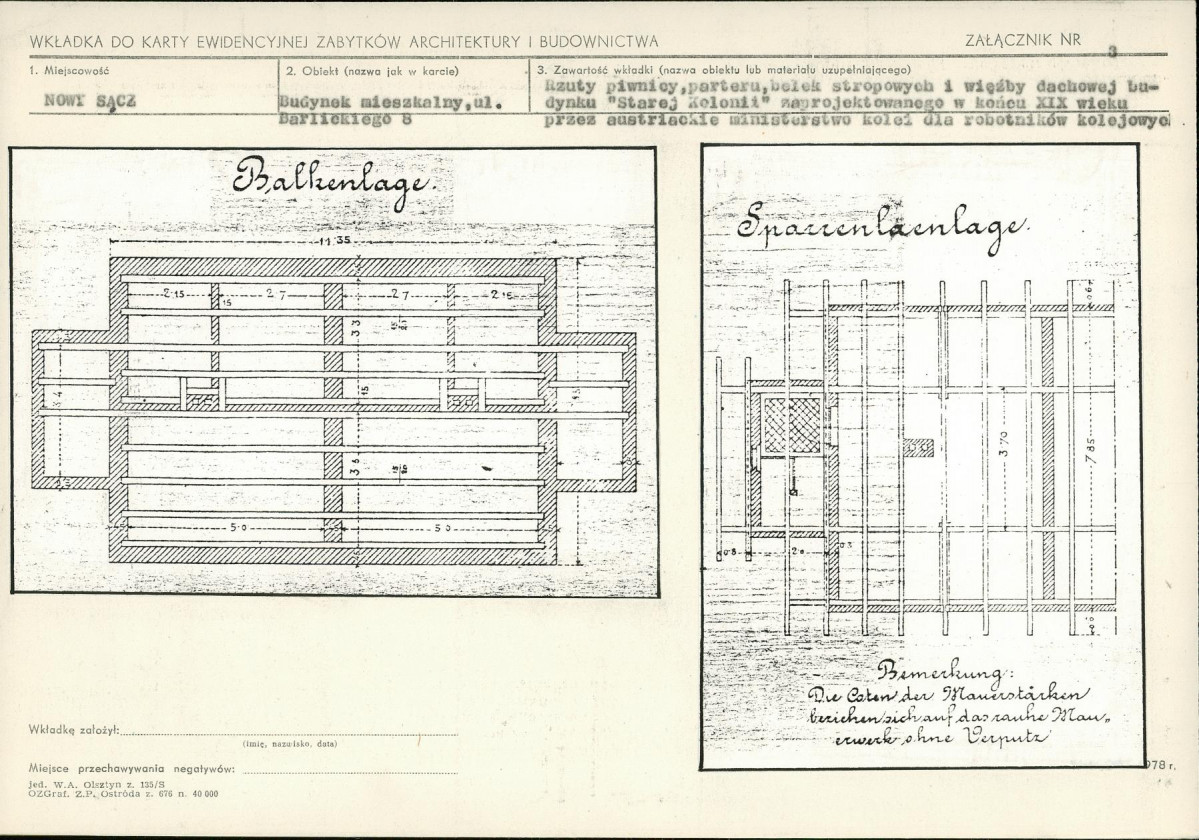 WKŁADKA DO KARTY EWIDENCYJNEJ ZABYTKÓW ARCHITEKTURY I BUDOWNICTWA
ZAŁĄCZNIK NR 3
1. Miejscowość
NOWY SĄCZ
2. Obiekt (nazwa jak w karcie)
Budynek mieszkalny,ul.
Barlickiego 8
3. Zawartość wkładki (nazwa obiektu lub materiału uzupełniającego)
Rzuty piwnicy,parteru,belek stropowych i więźby dachowej bu-
dynku "Starej Kolonii" zaprojektowanego w końcu XIX wieku
przez austriackie ministerstwo kolei dla robotników kolejowyc
Balkenlage.
11.35
2.15
2.7
2.7
2.15
15
3.3
15
3.4
3.6
5.0
5.0
Sparrenlaenlage.
3.70
7.85
0.8
2.0
0.3
Bemerkung:
Die Coten der Mauerstärken
beziehen sich auf das rauhe Mau„
erwerk ohne Verputz
Wkładkę założył:
(imię, nazwisko, data)
Miejsce przechawywania negatywów:
jed. W.A. Olsztyn z. 135/S
OZGraf. Z.P. Ostróda z. 676 n. 40 000
978 r.